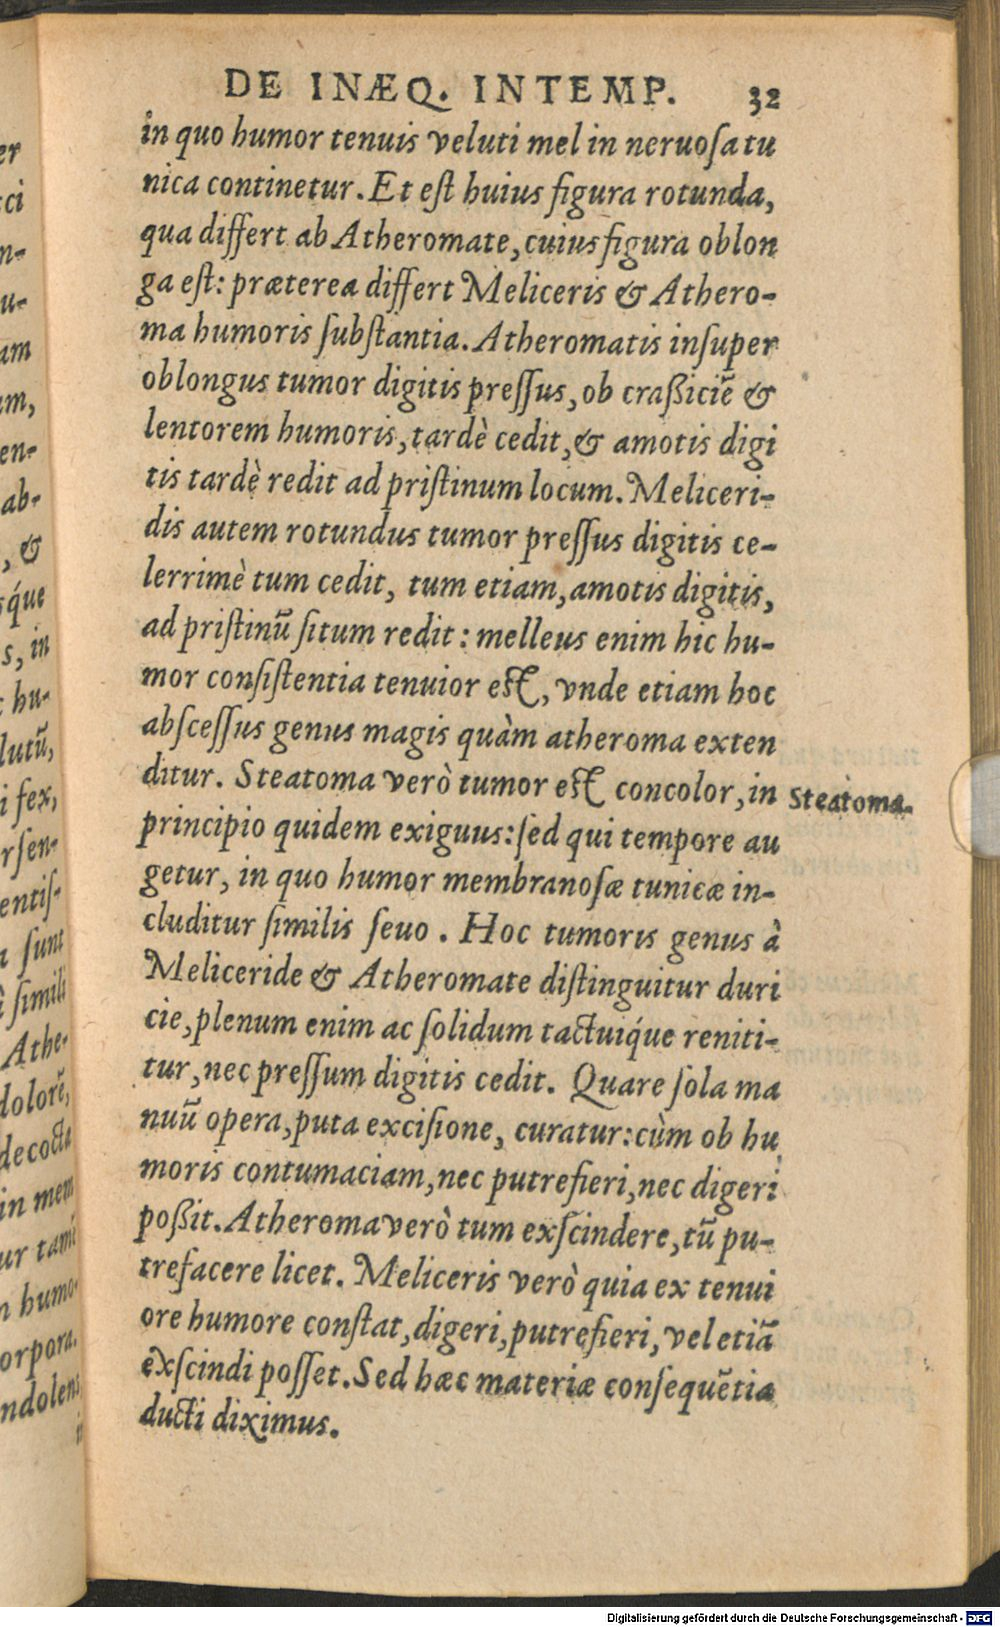 DE INÆQ. INTEMP. 32
in quo humor tenuis veluti mel in neruoſa tu
nica continetur. Et eſt huius figura rotunda,
qua differt ab Atheromate, cuius figura oblon
ga eſt: præterea differt Meliceris & Athero-
ma humoris ſubſtantia. Atheromatis inſuper
oblongus tumor digitis preſſus, ob craßiciē &
lentorem humoris, tardè cedit, & amotis digi
tis tardè redit ad priſtinum locum. Meliceri-
dis autem rotundus tumor preſſus digitis ce-
lerrimè tum cedit, tum etiam, amotis digitis,
ad priſtinū ſitum redit: melleus enim hic hu-
mor conſiſtentia tenuior eſt, vnde etiam hoc
abſceſſus genus magis quàm atheroma exten
ditur. Steatoma verò tumor eſt concolor, in
Steatoma.
principio quidem exiguus: ſed qui tempore au
getur, in quo humor membranoſæ tunicæ in-
cluditur ſimilis ſeuo. Hoc tumoris genus à
Meliceride & Atheromate diſtinguitur duri
cie, plenum enim ac ſolidum tactuiq́ue reniti-
tur, nec preſſum digitis cedit. Quare ſola ma
nuū opera, puta exciſione, curatur: cùm ob hu
moris contumaciam, nec putrefieri, nec digeri
poßit. Atheroma verò tum exſcindere, tū pu-
trefacere licet. Meliceris verò quia ex tenui
ore humore conſtat, digeri, putrefieri, vel etiā
exſcindi poſſet. Sed hæc materiæ conſequētia
ducti diximus.
er
ci
n-
u-
am
um,
en-
ab-
, &
sq́ue
s, in
hu-
lutū,
i fex,
rſen-
entiſ-
ſunt
ſimili
Athe-
dolorē,
decocta
in mem
ur tamē
humo-
orpora.
ndolens
Digitalisierung gefördert durch die Deutsche Forschungsgemeinschaft - DFG